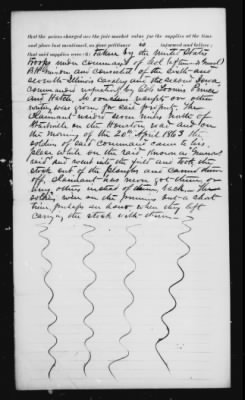 that the prices charged are the fair market value for the supplies at the time
and place last mentioned, as your petitioner is informed and believes;
that said supplies were taken by the United States
Troops under command of Col (afterwards General)
B. H. Grierson and consisted of the sixth and
seventh Illinois Cavalry and the second Iowa
commanded respectively by Cols Loomis, Prince
and Hatch. No vouchers receipts nor other
writing was given for said property. The
claimant resided seven miles north of
on the Houston road and on
the morning of the 20th April 1863 the
soldiers of said command came to his
place while on the raid known as Grierson's
raid and went into the field and took the
stock out of the ploughs and carried them
off, claimant has never got them or
any others instead of them back. The
soldiers were on the premises but a short
time, perhaps an hour when they left
carrying the stock with them—